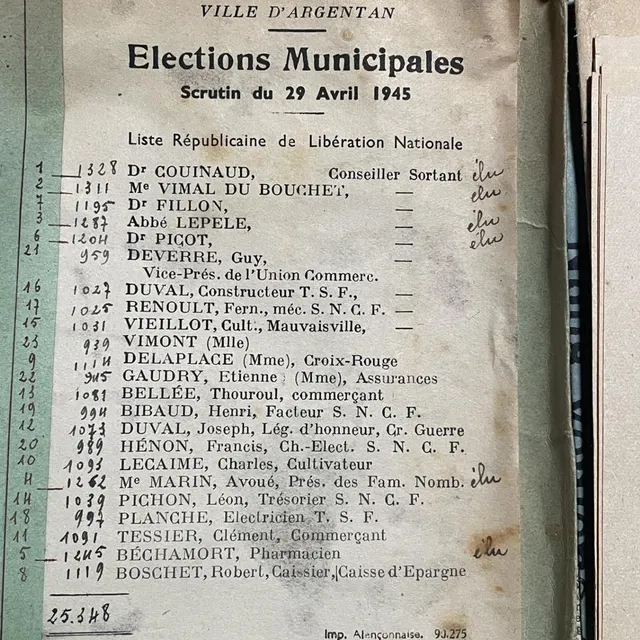 VILLE D'ARGENTAN
Elections Municipales
Scrutin du 29 Avril 1945
Liste Républicaine de Libération Nationale
1 1328 Dr COUINAUD, Conseiller Sortant élu
2 1311 Me VIMAL DU BOUCHET, — élu
7 1195 Dr FILLON, —
3 1287 Abbé LEPELE, — élu
6 1204 Dr PICOT, — élu
21 959 DEVERRE, Guy,
Vice-Prés. de l'Union Commerc.
16 1027 DUVAL, Constructeur T. S. F., —
17 1025 RENOULT, Fern., méc. S. N. C. F. —
15 1031 VIEILLOT, Cult., Mauvaisville, —
23 939 VIMONT (Mlle)
9 1114 DELAPLACE (Mme), Croix-Rouge
22 945 GAUDRY, Etienne (Mme), Assurances
13 1081 BELLÉE, Thouroul, commerçant
19 994 BIBAUD, Henri, Facteur S. N. C. F.
12 1073 DUVAL, Joseph, Lég. d'honneur, Cr. Guerre
20 989 HÉNON, Francis, Ch.-Elect. S. N. C. F.
10 1093 LECAIME, Charles, Cultivateur
4 1262 Me MARIN, Avoué, Prés. des Fam. Nomb. élu
14 1039 PICHON, Léon, Trésorier S. N. C. F.
18 997 PLANCHE, Electricien T. S. F.
11 1091 TESSIER, Clément, Commerçant
5 1245 BÉCHAMORT, Pharmacien élu
8 1119 BOSCHET, Robert, Caissier, Caisse d'Epargne
25.348
Imp. Alençonnaise. 90.275